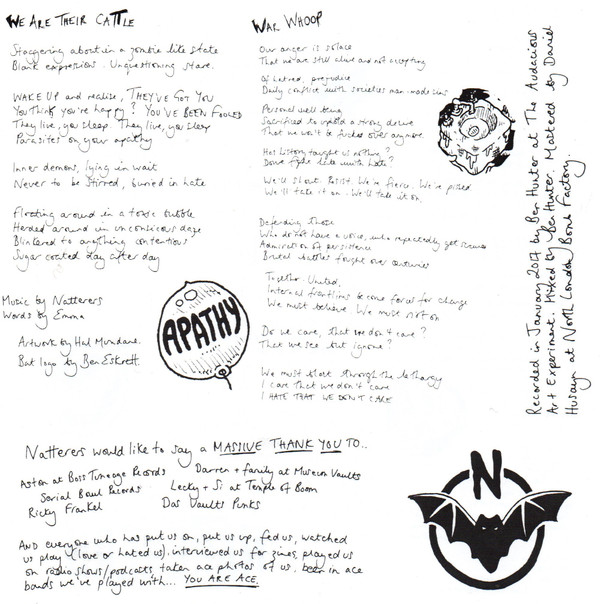 WE ARE THEIR CATTLE
Staggering about in a zombie like state
Blank expression. Unquestioning stare.
WAKE UP and realise, THEY'VE GOT YOU
You think you're happy? YOU'VE BEEN FOOLED
They live, you sleep. They live, you sleep
Parasites on your apathy
Inner demons, lying in wait
Never to be stirred, buried in hate
Floating around in a toxic bubble
Herded around in unconscious daze
Blinkered to anything contentious
Sugar coated day after day
Music by Natterers
Words by Emma
Artwork by Hal Mundane.
Bat logo by Ben Eskrett.
APATHY
WAR WHOOP
Our anger is solace
That we are still alive and not accepting
Of hatred, prejudice
Daily conflict with societies man-made
Personal well being
Sacrificed to uphold a strong desire
That we won't be fucked over anymore
Has history taught us nothing?
Done fight hate with hate?
We'll shout. Resist. We're fierce. We're pissed
We'll take it on. We'll take it on.
Defending those
Who do not have a voice, who repeatedly get
Admiration of persistence
Brutal battles fought over centuries
Together. United.
Internal frontlines become focus for change
We must believe We must not
Do we care, that we don't care?
That we see but ignore?
We must through the lethargy
I care that we don't care
I HATE THAT WE DON'T CARE
Recorded in January 2017 by Ben Hunter at The Audacious
Art Experiment. Mixed by Ben Hunter. Mastered by Daniel
Husayn at North London Bomb Factory.
Natterers would like to say a MASSIVE THANK YOU TO..
Aston at Boss Tuneage Records Darren + family at Museum Vaults
Social Records Lecky + Si at Temple of Boom
Ricky Frankel Das Vaults Punks
AND everyone who has put us on, put us up, fed us, watched
us play (love or hated us), interviewed us for zines, played us
on radio shows/podcasts, taken ace photos of us, been in ace
bands we've played with... YOU ARE ACE.
N